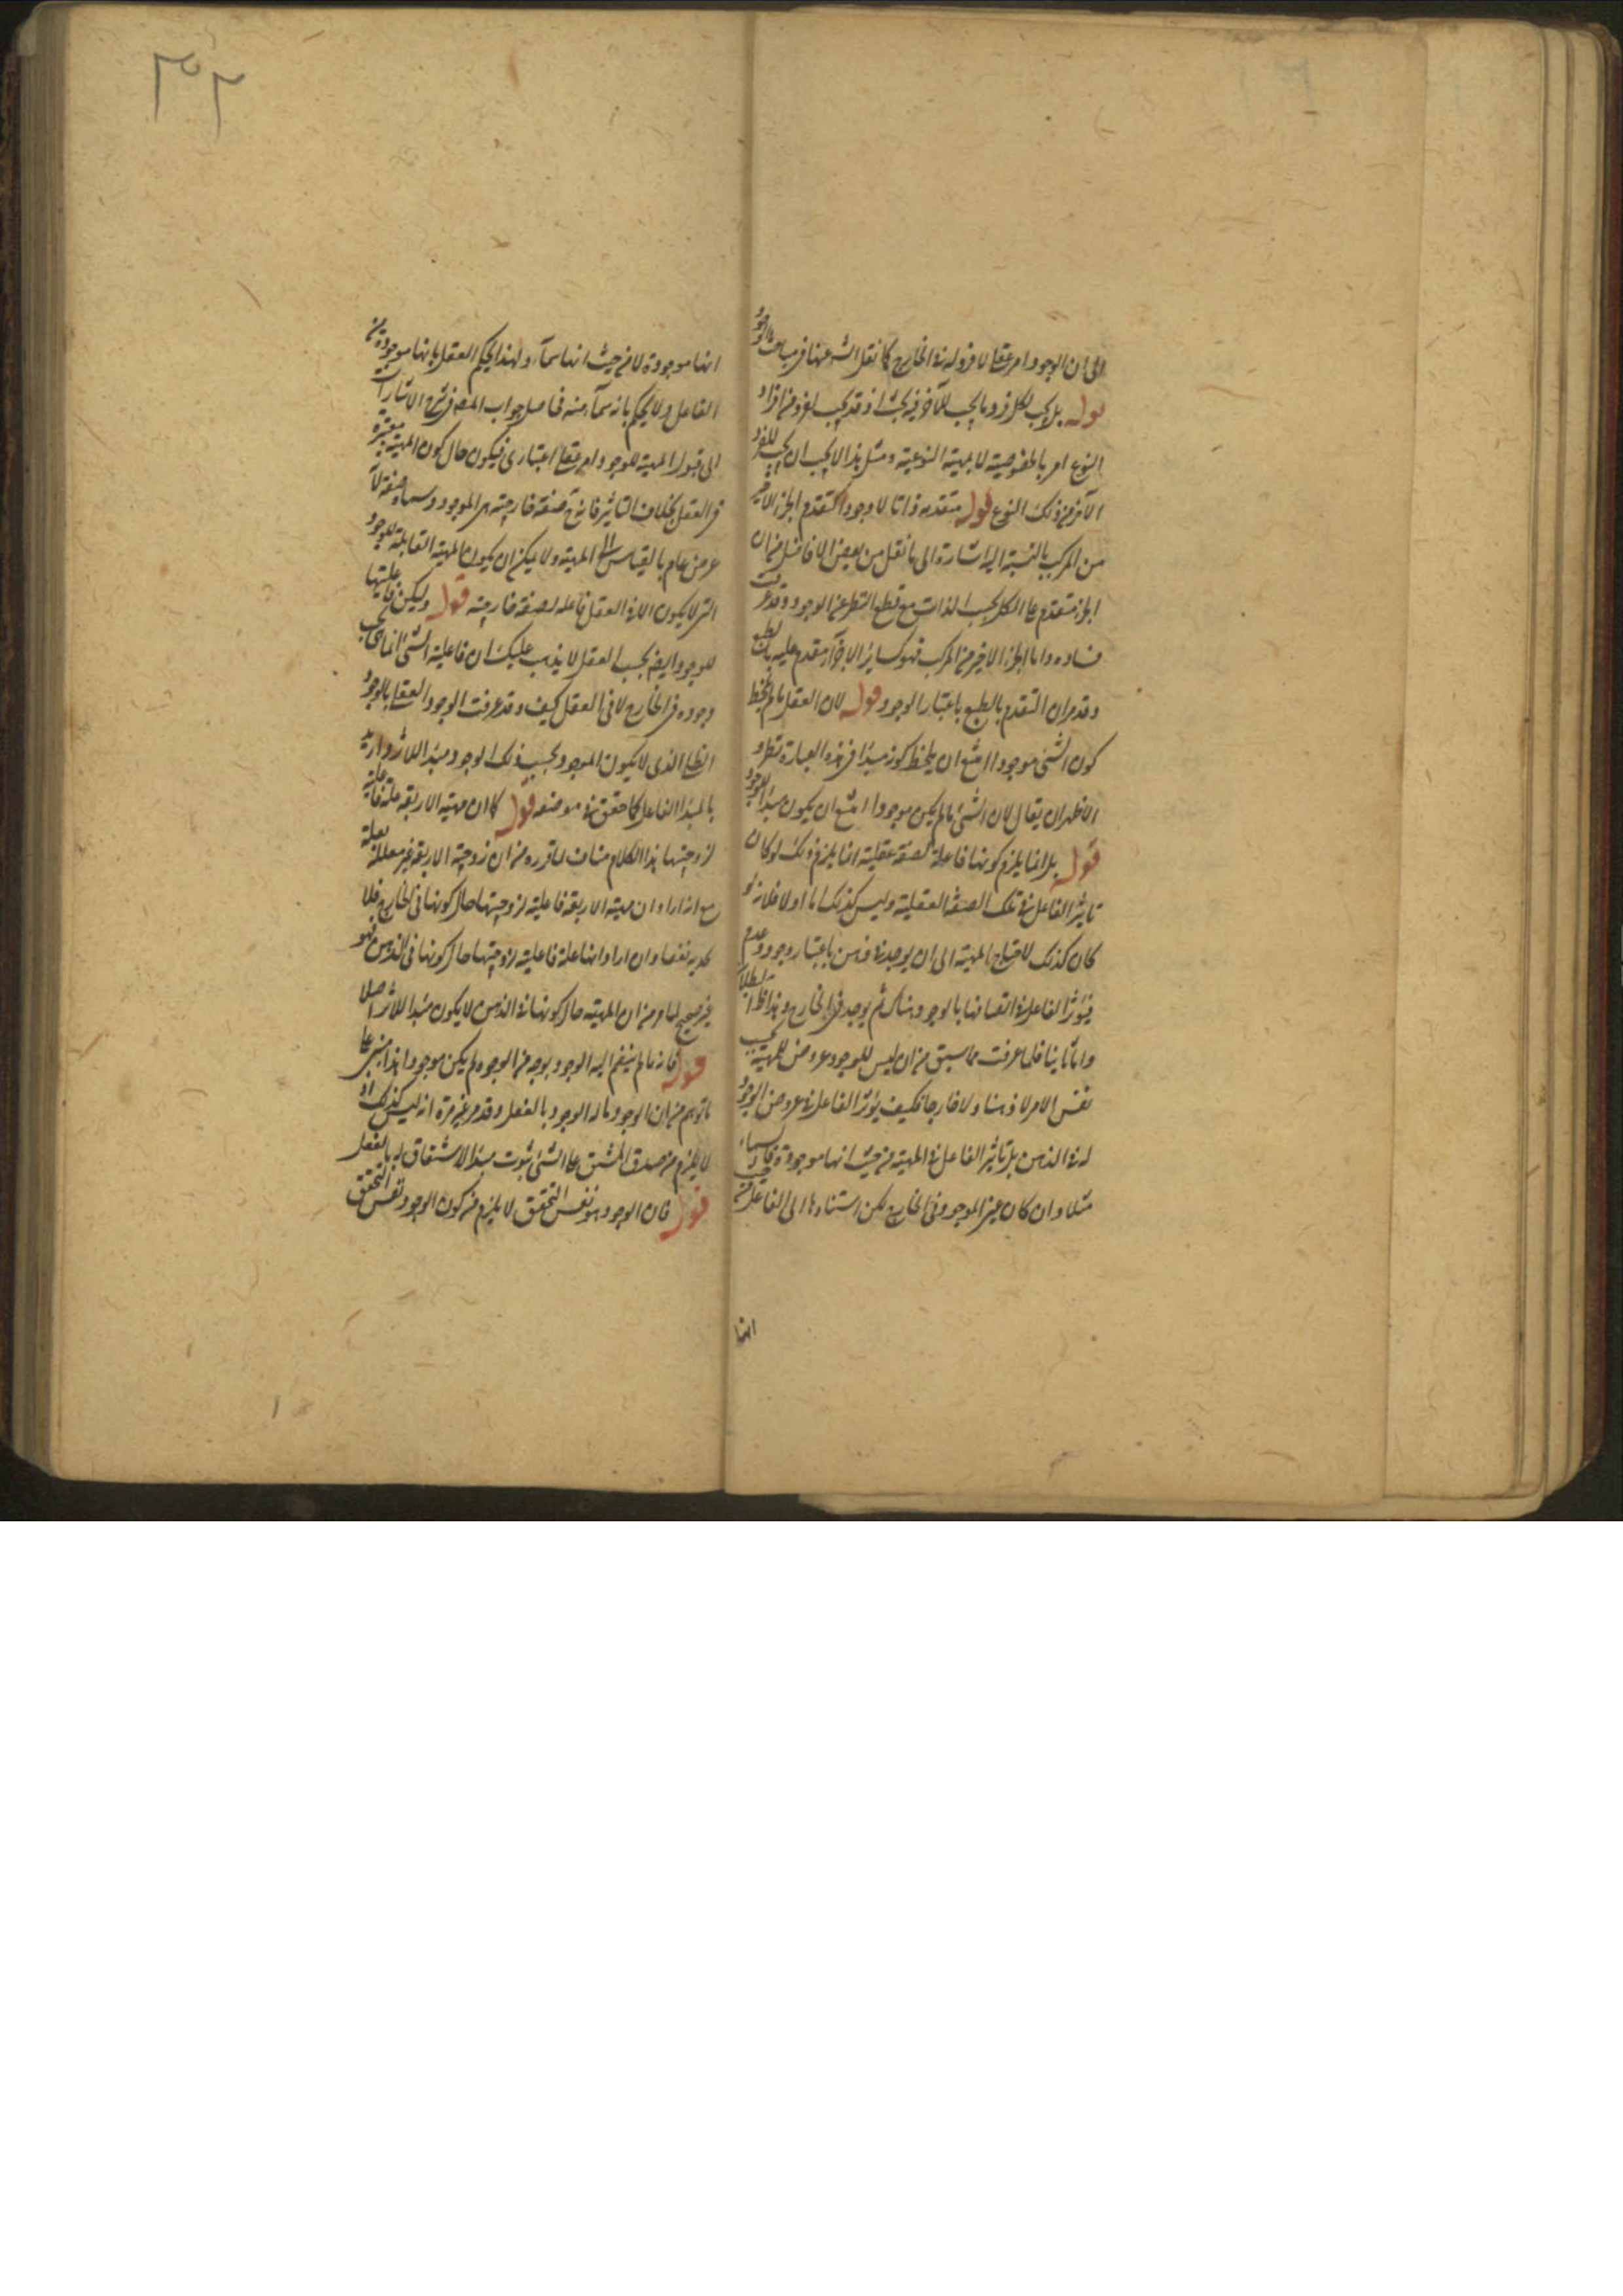 الى ان الوجود امر عقلى لا فرد له فى الخارج كما نقل الشه عنها قريب مباحث الوجود
قوله بل يجب لكل فرد ما يجب للآخر فيه بحث اذ قد يجب لفرد من افراد
النوع امر بالخصوصية لا بمهية النوعية ومثل هذا لا يجب ان يجب للفرد
الآخر من ذلك النوع قوله متقدمه ذاتا لا وجودا كتقدم الجزء الاخير
من المركب بالنسبة اليه اشارة الى ما نقل من بعض الافاضل من ان
الجزء متقدم على الكل بحسب الذات مع قطع النظر عن الوجود وقد عرفت
فساده واما الجزء الاخير من المركب فهو كساير الاجزاء مقدم عليه بالطبع
وقد مر ان التقدم بالطبع باعتبار الوجود قوله لان العقل ما لم يلحظ
كون الشئ موجودا امتنع ان يلحظ كونه مبدأ فى هذه العبارة نظر و
الاظهر ان يقال لان الشئ ما لم يكن موجودا امتنع ان يكون مبدأ للوجود
قوله بل انما يلزم كونها فاعلة لصفة عقلية انما يلزم ذلك لو كان
تاثير الفاعل فى تلك الصفة العقلية وليس كذلك اما اولا فلانه لو
كان كذلك لاحتياج المهية الى ان يوجد فى ذهن باعتبار وجود وعدم
فيؤثر الفاعل فى اتصافها بالوجود هناك ثم يوجد فى الخارج وهذا ظ البطلان
واما ثانيا فلما عرفت مما سبق من ان ليس للوجود عروض للمهية بحسب
نفس الامر لا ذهنا ولا خارجا فكيف يؤثر الفاعل فى عروض الوجود
له فى الذهن بل تاثير الفاعل فى المهية من حيث انها موجودة فالسماء
مثلا وان كان عين الموجود فى الخارج لكن استنادها الى الفاعل من حيث
انها
انها موجودة لا من حيث انها سماء ولهذا يحكم العقل بانها موجودة من
الفاعل ولا يحكم بانه سماء منه فحاصل جواب المص فى شرح الاشارات
الى قبول المهية للوجود امر عقلى اعتبارى فيكون حال كون المهية معتبرة
فى العقل بخلاف التاثير فانه صفة خارجية هى الموجود وسماه صفة لانه
عرض عام بالقياس الى المهية ولا يمكن ان يكون المهية القابلة للوجود
التى لا يكون الا فى العقل فاعله لصفة خارجية قوله وليكن فاعليتها
للوجود ايضا بحسب العقل لا يذهب عليك ان فاعلية الشئ انما هى بحسب
وجوده فى الخارج لا فى العقل كيف وقد عرفت الوجود العقلى بالوجود
الظلى الذى لا يكون الموجود بحسب ذلك الوجود مبدأ للاثر واريد
بالمبدأ الفاعل كما حقق فى موضعه قوله كما ان مهية الاربعة علة فاعلية
لزوجيتها هذا الكلام مناف لما قرره من ان زوجية الاربعة غير معللة بعلة
مع انه اراد ان مهية الاربعة فاعلية لزوجيتها حال كونها فى الخارج فلا
يجديه نفعا وان اراد انها علة فاعلية لزوجيتها حال كونها فى الذهن فهو
غير صحيح لما مر من ان المهية حال كونها فى الذهن لا يكون مبدأ للاثر اصلا
قوله فانه ما لم ينضم اليه الوجود بوجه من الوجوه لم يكن موجودا هذا مبنى على
ما توهم من ان الوجود ما له الوجود بالفعل وقد مر غير مرة انه ليس كذلك اذ
لا يلزم من صدق المشتق على الشئ ثبوت مبدأ الاشتقاق له بالفعل
قوله فان الوجود هو نفس التحقق لا يلزم من كون الوجود نفس التحقق